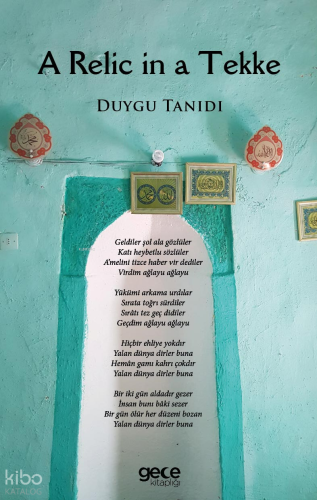 A Relic in a Tekke
DUYGU TANIDI
Geldiler şol ala gözlüler
Katı heybetlu sözlüler
A'melini tizce haber vir dediler
Virdim ağlayu ağlayu
Yükümi arkama urdılar
Sırata toğrı sürdiler
Sırâtı tez geç didiler
Geçdim ağlayu ağlayu
Hiçbir ehliye yokdır
Yalan dünya dirler buna
Hemân gamı kahrı çokdır
Yalan dünya dirler buna
Bir iki gün aldadır gezer
İnsan bunı bâki sezer
Bir gün ölür her düzeni bozan
Yalan dünya dirler buna
gece
kitaplığı
kibo
KATALOG